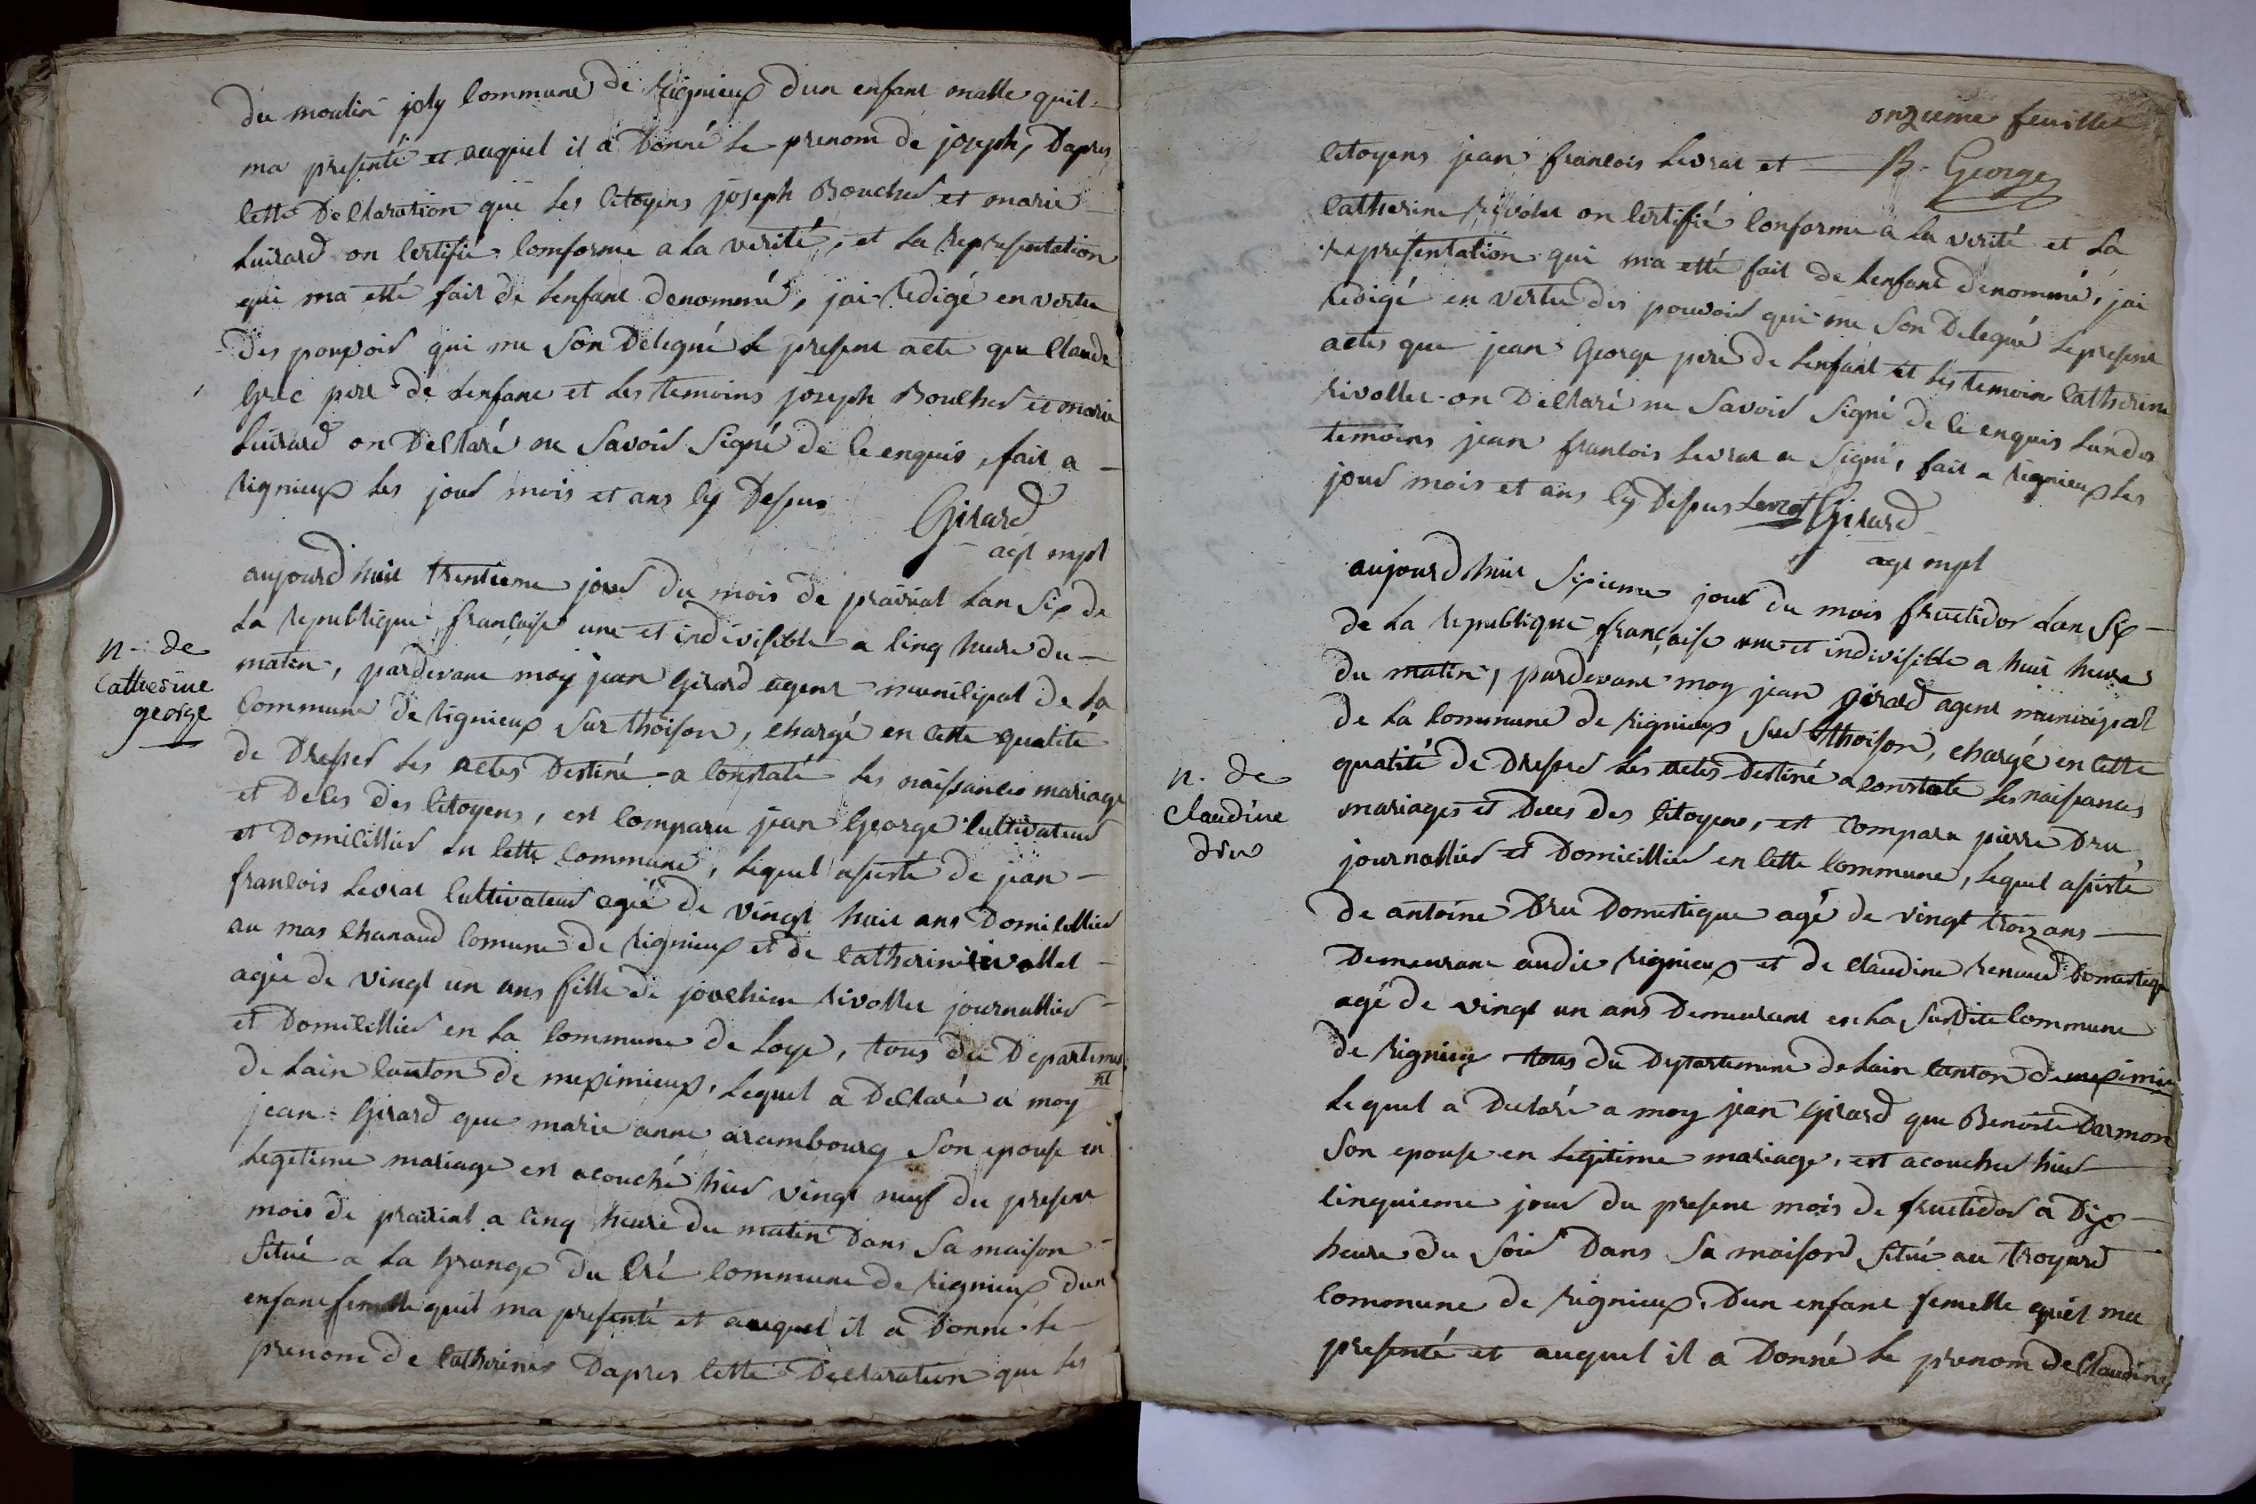 du moulin joly Commune de Rignieux dun enfant malle quil
ma presenté et auquel il a Donné le prenom de joseph, Dapres
cette Declaration que les Citoyens joseph Boucher et marie
Luirard on Certifié Comforme a la verité, et la representation
qui ma etté fait de lenfant denommé, jai Redigé en vertu
des pouvoir qui me son Delegué le present acte que Claude
Gree pere de lenfant et les temoins joseph Boucher et marie
Luirard on Declaré ne savoir signé de Ce enquis, fait a
Rignieux les jour mois et ans Cy Dessus
Girard
agt mpl
n. de
Catherine
george
aujourdhuit trentieme jour du mois de prairial lan six de
la Republique francaise une et indivisible a Cinq heure du
maten, pardevant moy jean Girard agent municipal de la
Commune de Rignieux sur thoison, chargé en Cette qualité
de Dresser les actes Destiné a Constaté les naissances mariage
et Deces des Citoyens, est Comparu jean George Cultivateur
et Domicillier en Cette Commune, lequel assisté de jean
francois Levrat Cultivateur agié de vingt huit ans Domicillier
au mas Chanaud Comune de Rignieux et de Catherine rivollet
agée de vingt un ans fille de jovchim Rivollet journallier
et Domicillier en la Commune de Loye, tous du Departeme
nt
de Lain Canton de meximieux, Lequel a Declaré a moy
jean Girard que marie anne arambourg son epouse en
Legetime mariage est acouché hier vingt neuf du present
mois de prairial a Cinq heure du maten Dans sa maison
situé a la Grange du Cré Commune de Rignieux dun
enfant femelle quil ma presenté et auquel il a Donne le
prenom de Catherine Dapres Cette Declaration que les
onzieme feuillet
B. George
Citoyens jean francois Levrat et
Catherine Rivolet on Certifié Conforme a la verité et la
representation qui ma etté fait de lenfant denommé, jai
Redigé en vertu des pouvoir qui me son Delegué le present
actes que jean George pere de lenfant et les temoin Catherine
Rivollet on Declaré ne savoir signé de Ce enquis lundes
temoins jean francois Levrat a signé, fait a Rignieux les
jour mois et ans Cy Dessus Levrat Girard
agt mpl
n. de
Claudine
dru
aujourdhuit sixieme jour du mois fructidor lan six
de la Republique française une et indivisible a huit heure
du matin, pardevant moy jean girard agent municipal
de la Commune de Rignieux sur thoison, chargé en Cette
qualité de Dresser les actes Destiné a Constate les naissances
mariages et Deces des Citoyens, est Comparu pierre Dru
journallier et Domicillier en Cette Commune, lequel assisté
de antoine Dru Domestique agé de vingt trois ans
Demeurant audit Rignieux et de Claudine Renaud Domestique
agé de vingt un ans Demeurant en la susdite Commune
de Rignieux tous du Departement de lain Canton de meximieu
Lequel a Declaré a moy jean Girard que Benoite Darmon
son epouse en Legitime mariage, est acoucher hier
Cinquieme jour du present mois de fructidor a Dix
heure du soir Dans sa maison situé au troyard
Commune de Rignieux, Dun enfant femelle quil ma
presenté et auquel il a Donné le prenom de Claudine